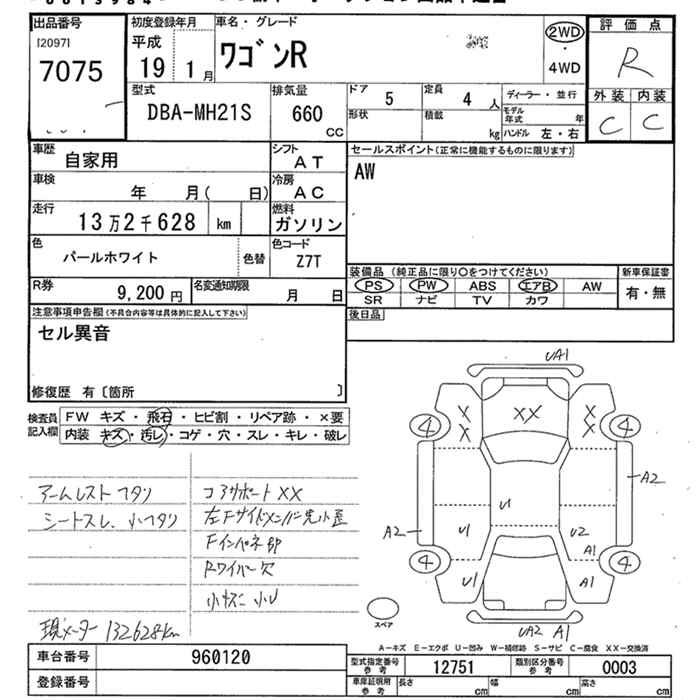 出品番号 初度登録年月 車名・グレード 評価点
[2097] 平成 2WD
7075 19 1月 ワゴンR ・ R
4WD
型式 排気量 ドア 5 定員 4人 ディーラー・並行 外装 内装
DBA-MH21S 660 CC 形状 積載 kg モデル年式 年 C C
ハンドル 左・右
車歴 自家用 シフト AT セールスポイント(正常に機能するものに限ります)
車検 年 月( 日) 冷房 AC AW
走行 13万2千628 km 燃料 ガソリン
色 パールホワイト 色替 色コード Z7T
装備品 (純正品に限り○をつけてください) 新車保証書
R券 9,200円 名変通知期限 月 日 PS PW ABS エアB AW 有・無
SR ナビ TV カワ
注意事項申告欄(不具合内容等は具体的に記入して下さい) 後日品
セル異音
修復歴 有〔箇所 〕
検査員 FW キズ・飛石・ヒビ割・リペア跡・×要
記入欄 内装 キズ・汚レ・コゲ・穴・スレ・キレ・破レ
アームレストヘタリ コアサポートXX
シートスレ、小ヘタリ 左Fサイドメンバー先小歪
Fインパネ部
Rワイパー欠
小キズ 小U
現メーター132628km
UA1
XX XX XX
4 4
A2
U1
A2 U1 U2
A1
4 4
U1 A1
UA2 A1
スペア
A-キズ E-エクボ U-凹み W-補修跡 S-サビ C-腐食 XX-交換済
車台番号 960120 型式指定番号 参考 12751 類別区分番号 参考 0003
登録番号 車庫証明用 参考 長さ cm 幅 cm 高さ cm